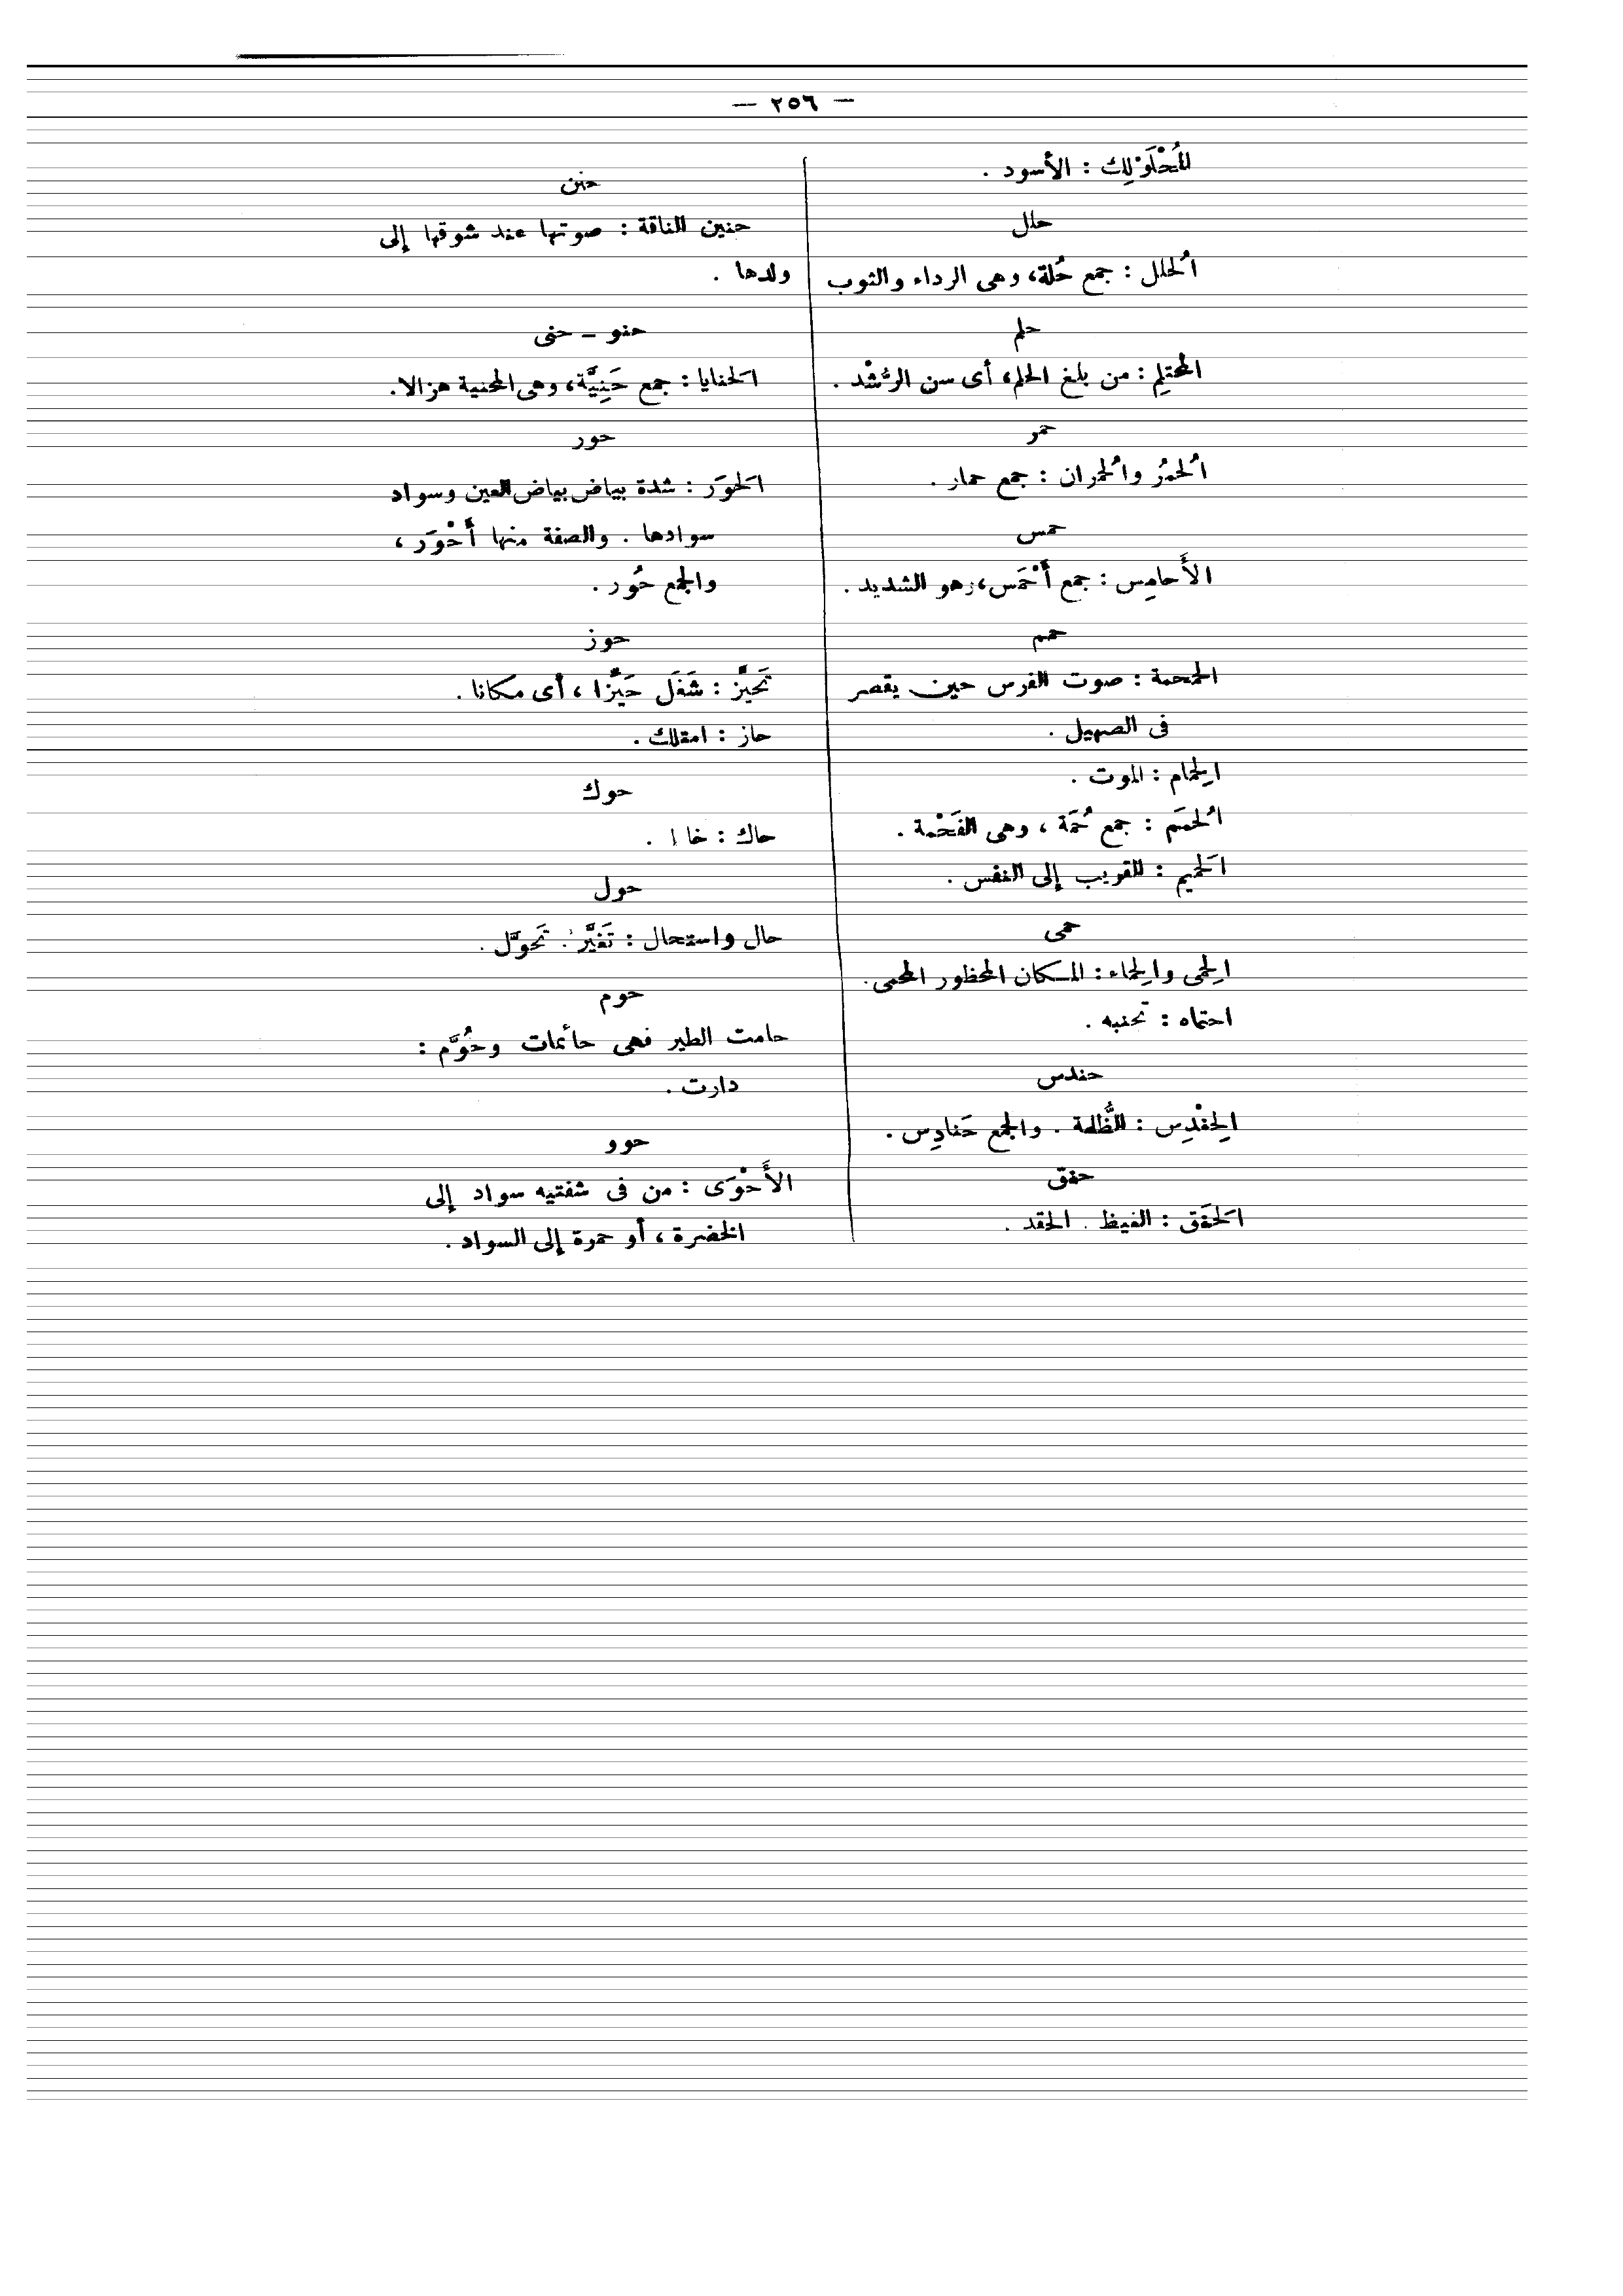 — ٢٥٦ —
المُحْلَوْلِك : الأسود .
حلل
الُحلل : جمع حُلة، وهى الرداء والثوب
حلم
المحتلِم : من بلغ الحلم، أى سن الرُّشْد .
حمر
الُحمُر والُحمران : جمع حمار .
حمس
الأَحامِس : جمع أَحْمَس، وهو الشديد .
حمم
الحمحمة : صوت الفرس حين يقصر
فى الصهيل .
الِحمام : الموت .
الُحمَم : جمع حُمَمة ، وهى الفَحْمة .
الَحميم : القريب إلى النفس .
حمى
الِحمى والِحماء : المكان المحظور المحمى .
احتماه : تجنبه .
حندس
الِحنْدِس : الظُّلمة . والجمع حَنادِس .
حنق
الَحنَق : الغيظ . الحقد .
حنن
حنين الناقة : صوتها عند شوقها إلى
ولدها .
حنو – حنى
الَحنايا : جمع حَنِيَّة، وهى المحنية هزالا .
حور
الَحوَر : شدة بياض بياض العين وسواد
سوادها . والصفة منها أَحْوَر ،
والجمع حُور .
حوز
تَحيَّز : شَغَل حَيِّزًا ، أى مكانا .
حاز : امتلك .
حوك
حاك :
حول
حال واستحال : تَغيَّر . تَحوَّل .
حوم
حامت الطير فهى حائمات وحُوَّم :
دارت .
حوو
الأَحْوَى : من فى شفتيه سواد إلى
الخضرة ، أو حمرة إلى السواد .